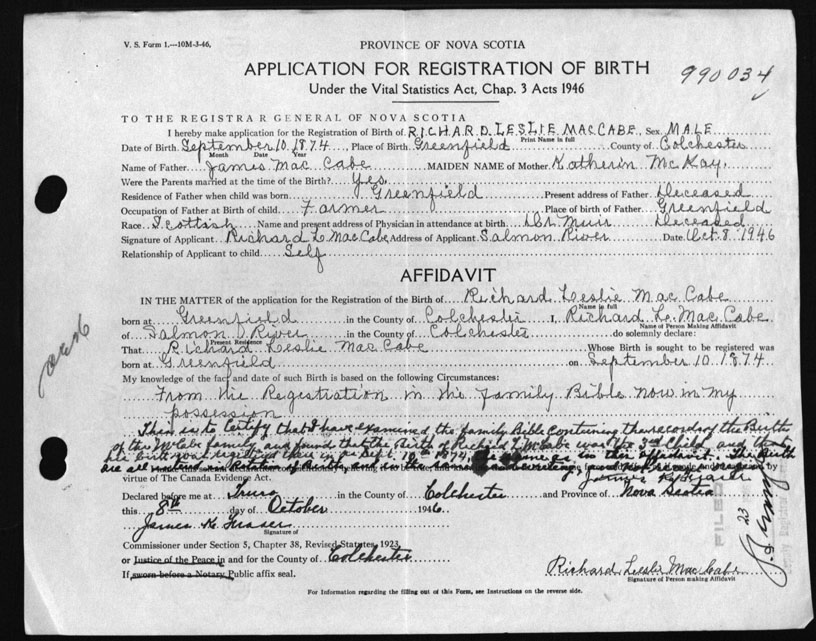 V. S. Form 1.—10M-3-46.
PROVINCE OF NOVA SCOTIA
APPLICATION FOR REGISTRATION OF BIRTH
990034
Under the Vital Statistics Act, Chap. 3 Acts 1946
TO THE REGISTRAR GENERAL OF NOVA SCOTIA
I hereby make application for the Registration of Birth of RICHARD LESLIE MACCABE, Sex MALE
Print Name in full
Date of Birth September 10, 1874, Place of Birth Greenfield County of Colchester
Month Date Year
Name of Father James Mac Cabe MAIDEN NAME of Mother Katherin McKay.
Were the Parents married at the time of the Birth? Yes
Residence of Father when child was born Greenfield Present address of Father Deceased
Occupation of Father at Birth of child Farmer Place of birth of Father Greenfield
Race Scottish Name and present address of Physician in attendance at birth Dr. Muir Deceased
Signature of Applicant Richard L. MacCabe Address of Applicant Salmon River Date Oct. 8, 1946
Relationship of Applicant to child Self
AFFIDAVIT
IN THE MATTER of the application for the Registration of the Birth of Richard Leslie Mac Cabe
Name in full
born at Greenfield in the County of Colchester I, Richard L. Mac Cabe
Name of Person Making Affidavit
of Salmon River in the County of Colchester do solemnly declare:
Present Residence
That Richard Leslie MacCabe Whose Birth is sought to be registered was
born at Greenfield on September 10, 1874
My knowledge of the fact and date of such Birth is based on the following Circumstances:
From the Registration in the family Bible now in my
possession
This is to Certify that I have examined the family Bible containing the record of the Birth
of the McCabe family and found that the birth of Richard L. McCabe was the 3rd Child and that
his birth was registered there in as Sept 10th 1874, in this affidavit. The Birth
are all
James K. Fraser
virtue of The Canada Evidence Act.
Declared before me at Truro in the County of Colchester and Province of Nova Scotia
this 8th day of October 1946
James K. Fraser
Signature of
Commissioner under Section 5, Chapter 38, Revised Statutes, 1923,
or Justice of the Peace in and for the County of Colchester
If sworn before a Notary Public affix seal.
Richard Leslie MacCabe
Signature of Person making Affidavit
For Information regarding the filling out of this Form, see Instructions on the reverse side.
FILED
23